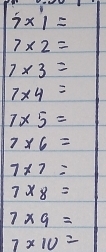 7 × 1 =
7 × 2 =
7 × 3 =
7 × 4 =
7 × 5 =
7 × 6 =
7 × 7 =
7 × 8 =
7 × 9 =
7 × 10 =